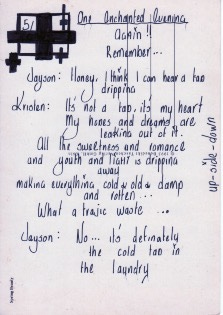 5/
One Enchanted Evening
Again!!
Remember...
Jayson: Honey, I think I can hear a tap
dripping
Kristen: It's not a tap, it's my heart
My hopes and dreams are
leaking out of it.
All the sweetness and romance
and youth and light is dripping
away
making everything cold & old & damp
and rotten...
What a tragic waste ...
Jayson: No... it's definately
the cold tap in
the laundry
up-side-down